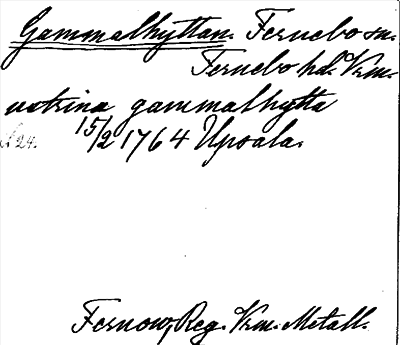 Gammalhyttan. Fernebo sn.
Fernebo hd. Vrm.
ustrina gammalhytta
15/2 1764 Upsala.
24.
Fernow, Reg. Vrm. Metall.